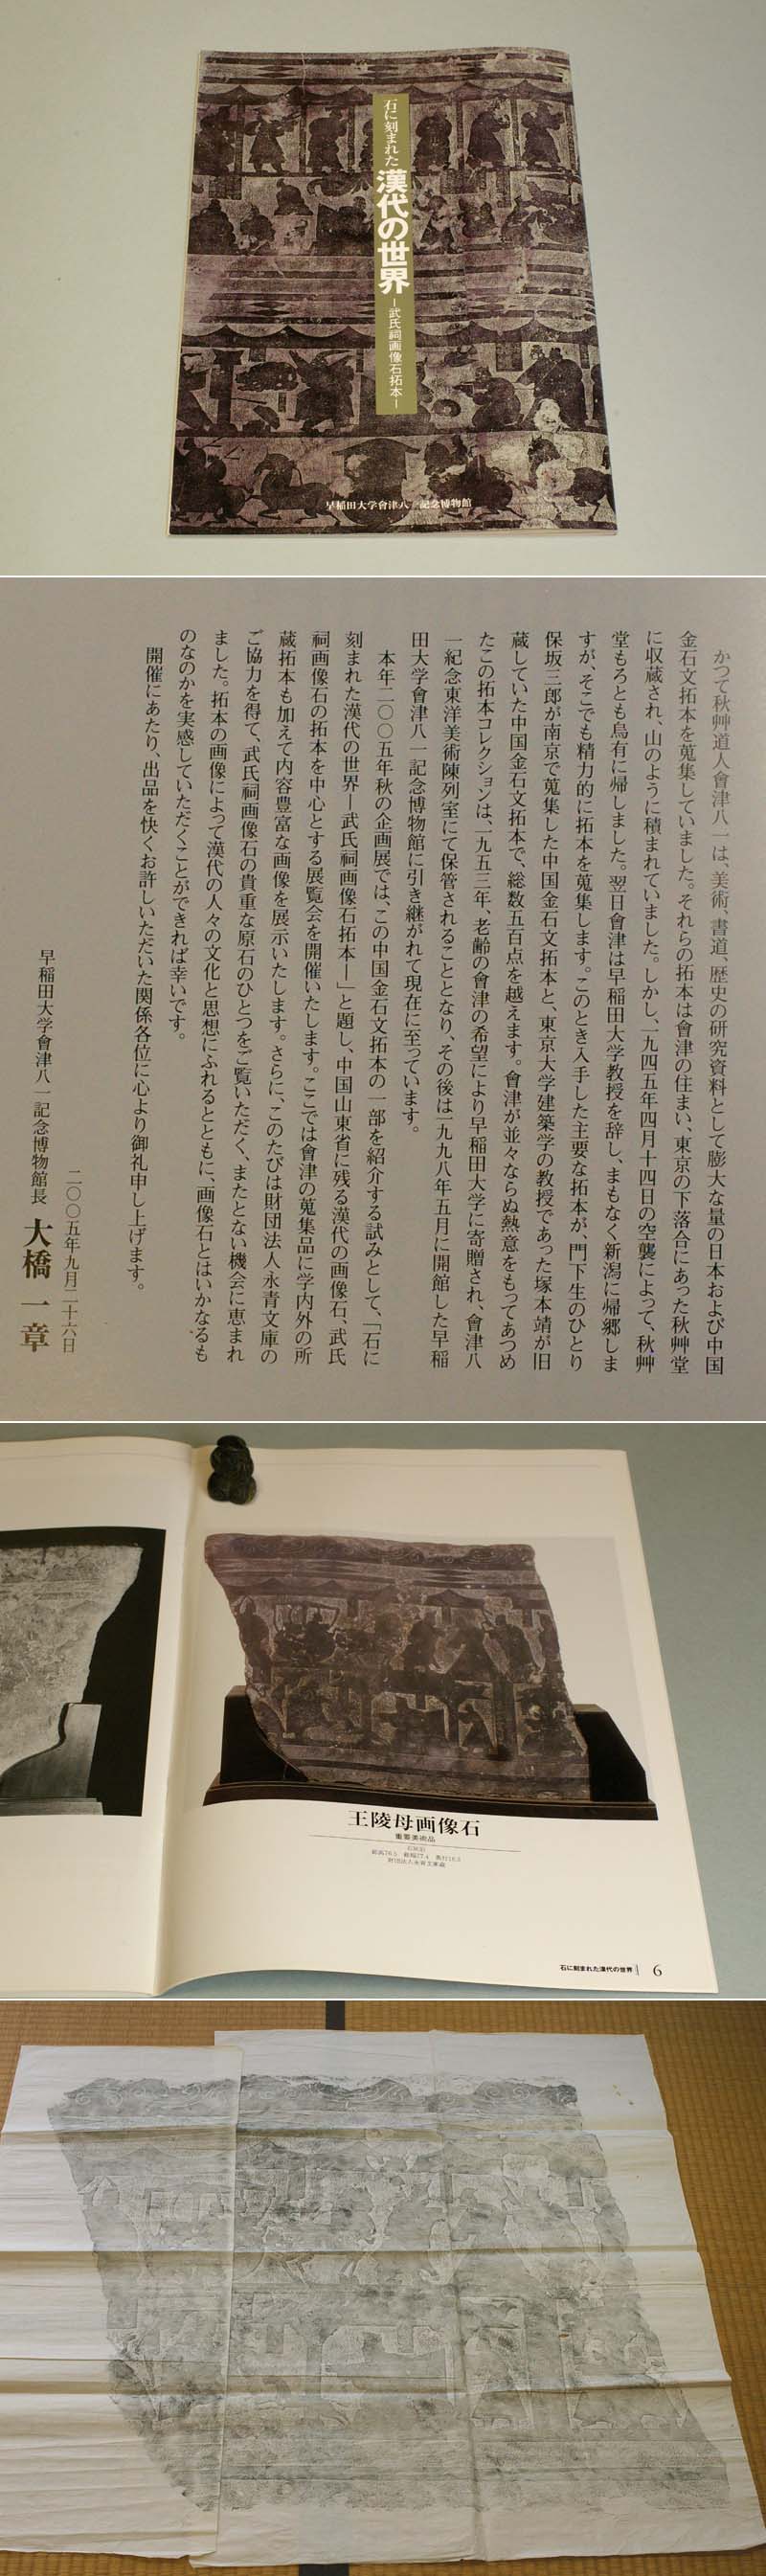 石に刻まれた漢代の世界
―武氏祠画像石拓本―
早稲田大学會津八一記念博物館
かつて秋艸道人會津八一は、美術、書道、歴史の研究資料として膨大な量の日本および中国
金石文拓本を蒐集していました。それらの拓本は會津の住まい、東京の下落合にあった秋艸堂
に収蔵され、山のように積まれていました。しかし、一九四五年四月十四日の空襲によって、秋艸
堂もろとも烏有に帰しました。翌日會津は早稲田大学教授を辞し、まもなく新潟に帰郷しま
すが、そこでも精力的に拓本を蒐集します。このとき入手した主要な拓本が、門下生のひとり
保坂三郎が南京で蒐集した中国金石文拓本と、東京大学建築学の教授であった塚本靖が旧
蔵していた中国金石文拓本で、総数五百点を越えます。會津が並々ならぬ熱意をもってあつめ
たこの拓本コレクションは、一九五三年、老齢の會津の希望により早稲田大学に寄贈され、會津八
一紀念東洋美術陳列室にて保管されることとなり、その後は一九九八年五月に開館した早稲
田大学會津八一記念博物館に引き継がれて現在に至っています。
本年二〇〇五年秋の企画展では、この中国金石文拓本の一部を紹介する試みとして、「石に
刻まれた漢代の世界―武氏祠画像石拓本―」と題し、中国山東省に残る漢代の画像石、武氏
祠画像石の拓本を中心とする展覧会を開催いたします。ここでは會津の蒐集品に学内外の所
蔵拓本も加えて内容豊富な画像を展示いたします。さらに、このたびは財団法人永青文庫の
ご協力を得て、武氏祠画像石の貴重な原石のひとつをご覧いただく、またとない機会に恵まれ
ました。拓本の画像によって漢代の人々の文化と思想にふれるとともに、画像石とはいかなるも
のなのかを実感していただくことができれば幸いです。
開催にあたり、出品を快くお許しいただいた関係各位に心より御礼申し上げます。
二〇〇五年九月二十六日
早稲田大学會津八一記念博物館長 大橋一章
王陵母画像石
重要美術品
財団法人永青文庫蔵
石に刻まれた漢代の世界 6